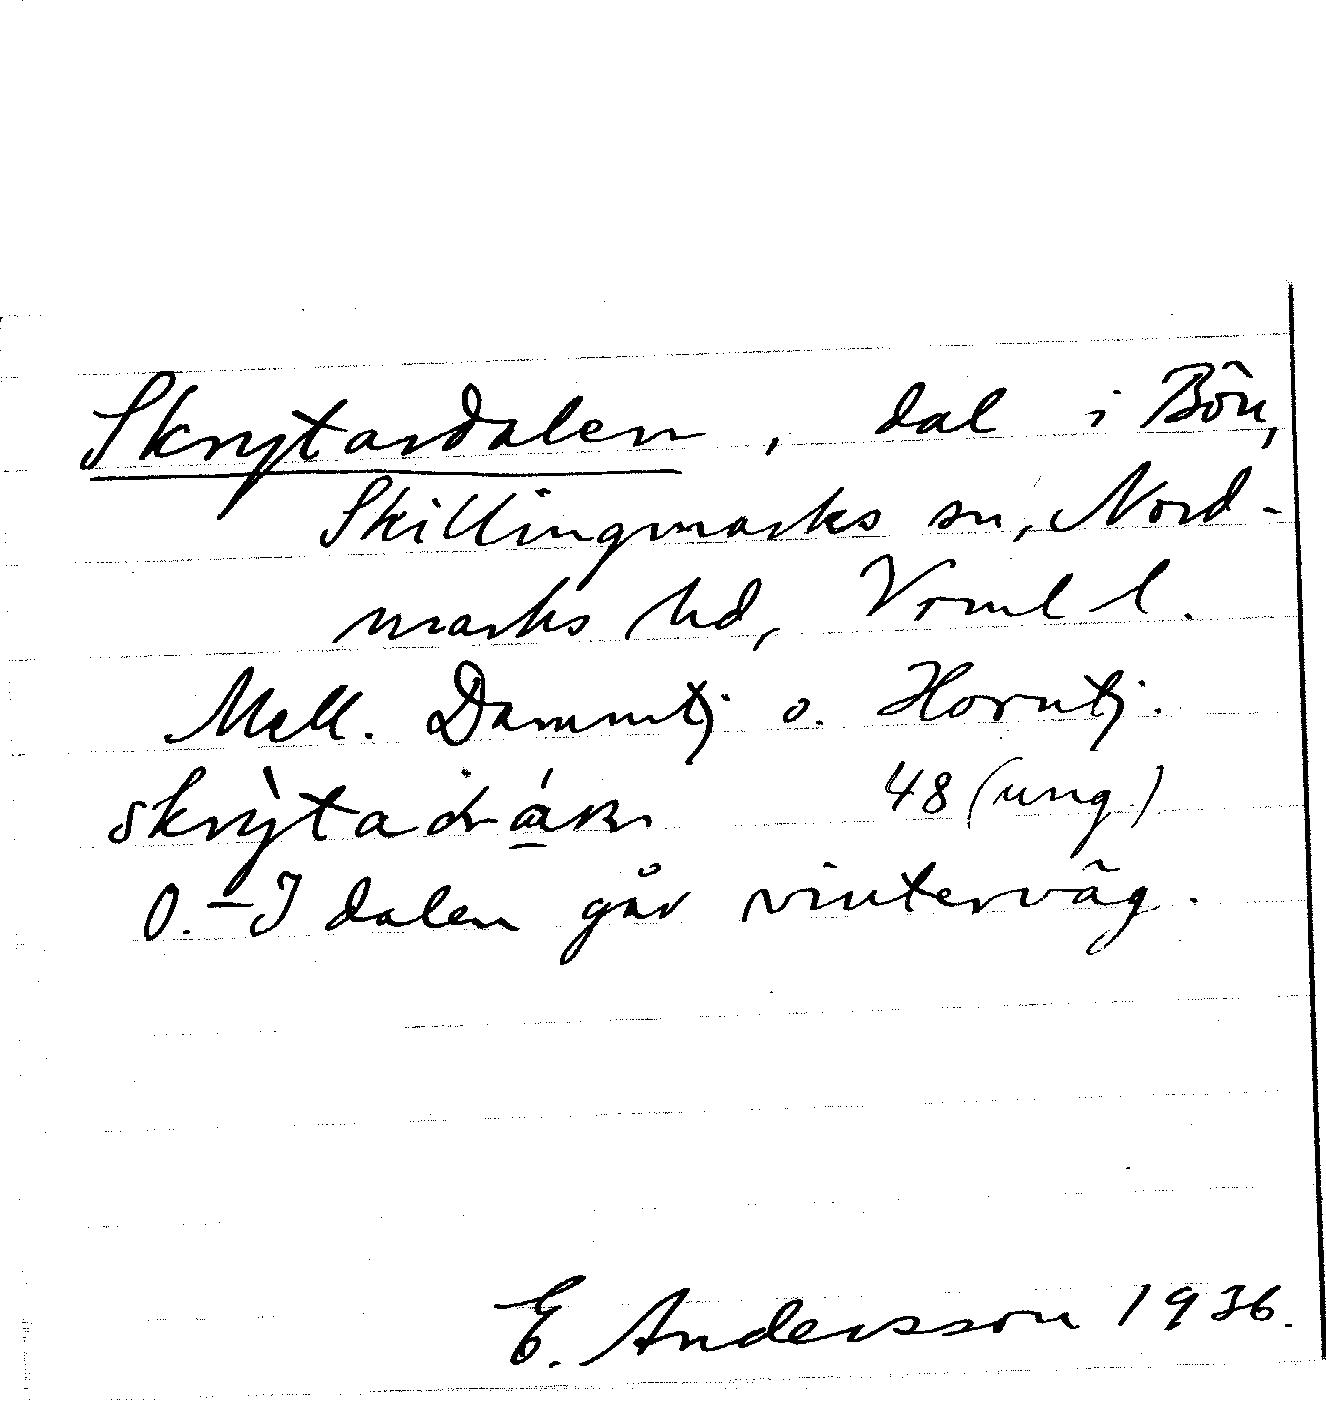 Skrytardalen, dal i Bön,
Skillingmarks sn, Nord-
marks hd, Vrml l.
Mell. Dammtj o. Horntj.
48 (ung.)
O. – I dalen går vinterväg.
E. Andersson 1936.